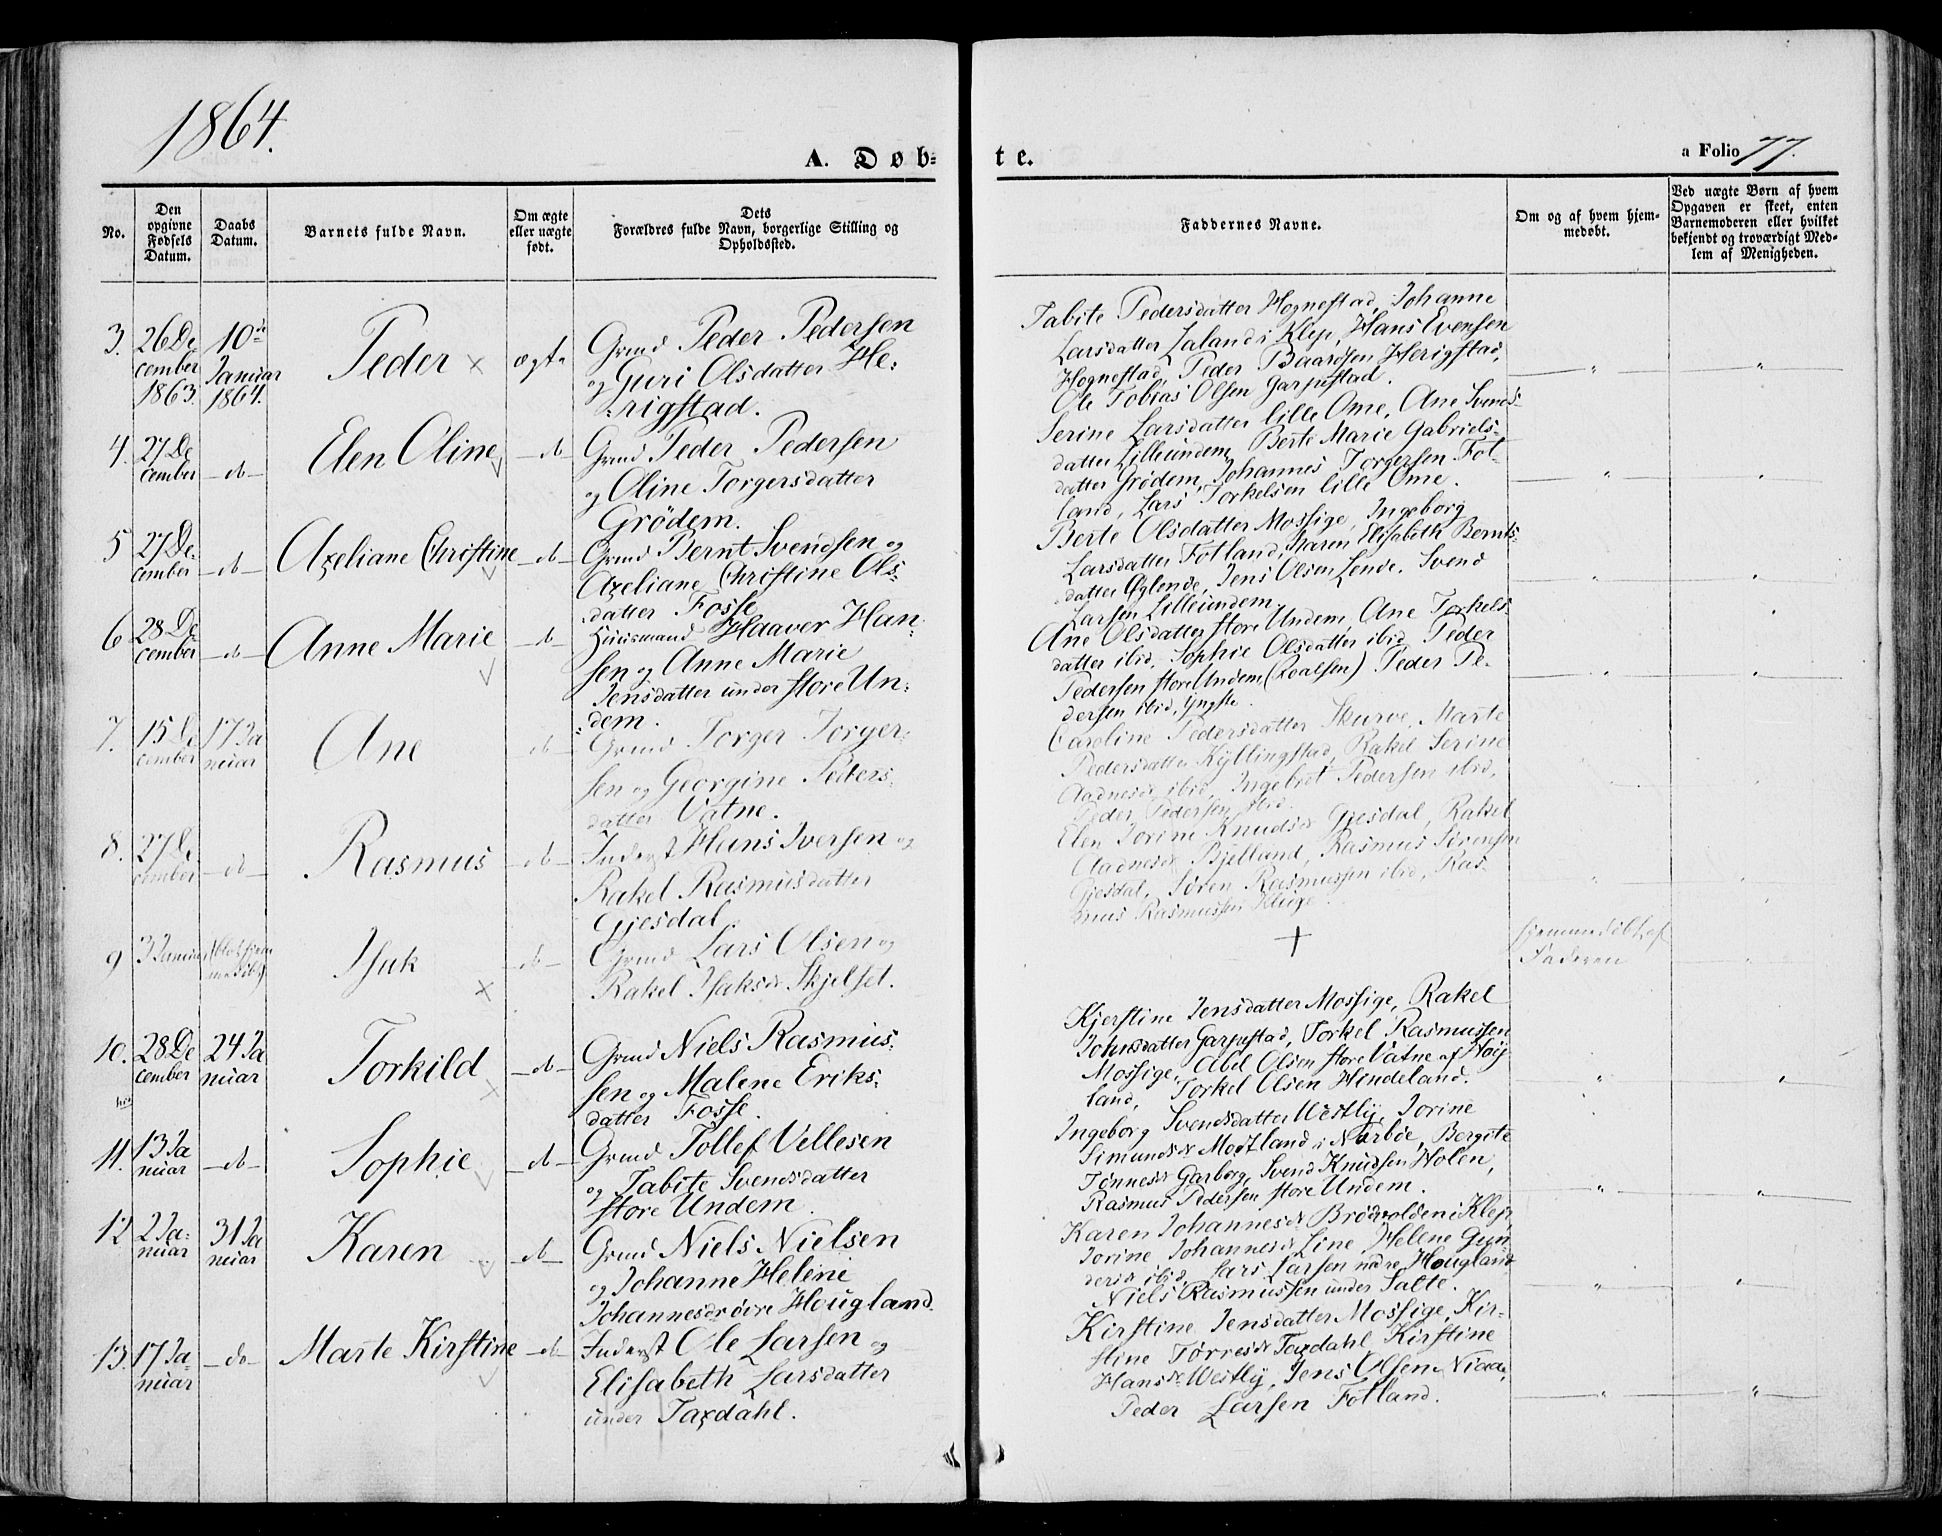 1864.
A. Døb-
te.
a Folio 77.
No.
Den
opgivne
Fødsels
Datum.
Daabs
Datum.
Barnets fulde Navn.
Om ægte
eller uægte
født.
Dets
Forældres fulde Navn, borgerlige Stilling og
Opholdssted.
Faddernes Navne.
Om og af hvem hjem-
medøbt.
Ved uægte Børn af hvem
Opgaven er skeet, enten
Barnemoderen eller hvilket
bekjendt og troværdigt Med-
lem af Menigheden.
3.
26 De
cember
1863.
10de
Januar
1864.
Peder
ægte
Grmd Peder Pedersen
og Guri Olsdatter He-
rigstad.
Tabite Pedersdatter Hognestad, Johanne
Larsdatter Laland i Klep, Hans Evensen
Hognestad, Peder Baardsen Herigstad,
Ole Tobias Olsen Garpestad.
4.
27 De
cember
do
Elen Oline
do
Grmd Peder Pedersen
og Oline Torgersdatter
Grödem.
Serine Larsdatter lille Ome, Ane Svends-
datter Lilleundem, Berte Marie Gabriels-
datter Grödem, Johannes Torgersen Fot-
land, Lars Torkelsen lille Ome.
5
27 De-
cember
do
Axeliane Christine
do
Grmd Bernt Svendsen og
Axeliane Christine Ols-
datter Fosse
Berte Olsdatter Mossige, Ingeborg
Larsdatter Fotland, Maren Elisabeth Bernts-
datter Øglende, Jens Olsen Lende. Svend
Larsen Lilleundem.
6
28 De
cember
do
Anne Marie
do
Huusmand Haaver Han-
sen og Anne Marie
Jensdatter under store Un-
dem.
Ane Olsdatter store Undem, Ane Torkels
datter ibid. Sophie Olsdatter ibid, Peder
Pedersen store Undem (Roalsen) Peder Pe-
dersen ibid, yngste.
7.
15 De
cember
17 Ja
nuar
Ane
do
Grmd Torger Torger-
sen og Georgine Peders-
datter Vatne.
Caroline Pedersdatter Skurve, Marte
Pedersdatter Kyllingstad, Rakel Serine
Aadnesdr ibid, Ingebret Pedersen ibid,
Peder Pedersen ibid.
8.
27 De
cember
do
Rasmus
do
Inderst Hans Iversen og
Rakel Rasmusdatter
Gjesdal.
Elen Jorine Knudsdr Gjesdal, Rakel
Aadnesdr Bjelland, Rasmus Sörensen
Gjesdal, Sören Rasmussen ibid, Ras
mus Rasmussen Kluge.
9
3 Januar
(blot hjem
medöbt)
Isak
do
Grmd Lars Olsen og
Rakel Isaksdr Skjelset.
+
hjemmedöbt af
Faderen
10.
28 De
cember
24 Ja
nuar
Torkild
do
Grmd Niels Rasmus-
sen og Malene Eriks-
datter Fosse.
Kjerstine Jensdatter Mossige, Rakel
Johnsdatter Garpestad, Torkel Rasmussen
Mossige, Abel Olsen store Vatne af Höi-
land, Torkel Olsen Hindeland.
11.
13 Ja
nuar
do
Sophie
do
Grmd Tollef Vellesen
og Tabite Svendsdatter
store Undem.
Ingeborg Svendsdatter Westly, Jorine
Simundsdr Modtland i Nærbøe, Bergite
Tönnesdr Garborg, Svend Knudsen Holen,
Rasmus Pedersen store Undem.
12
2 Ja-
nuar
31 Ja
nuar
Karen
do
Grmd Niels Nielsen
og Johanne Helene
Johannesdr övre Hougland
Karen Johannesdr Brödvolden i Klep,
Jorine Johannesdr Line Helene Gun
dersdr ibid, Lars Larsen nedre Hougland
Niels Rasmussen under Salte.
13
17 Ja-
nuar
do
Marte Kirstine
do
Inderst Ole Larsen og
Elisabeth Larsdatter
under Taxdahl.
Kirstine Jensdatter Mossige, Kir-
stine Törresdr Taxdahl Kirstine
Hansdr Westly, Jens Olsen Niaa,
Peder Larsen Fotland.